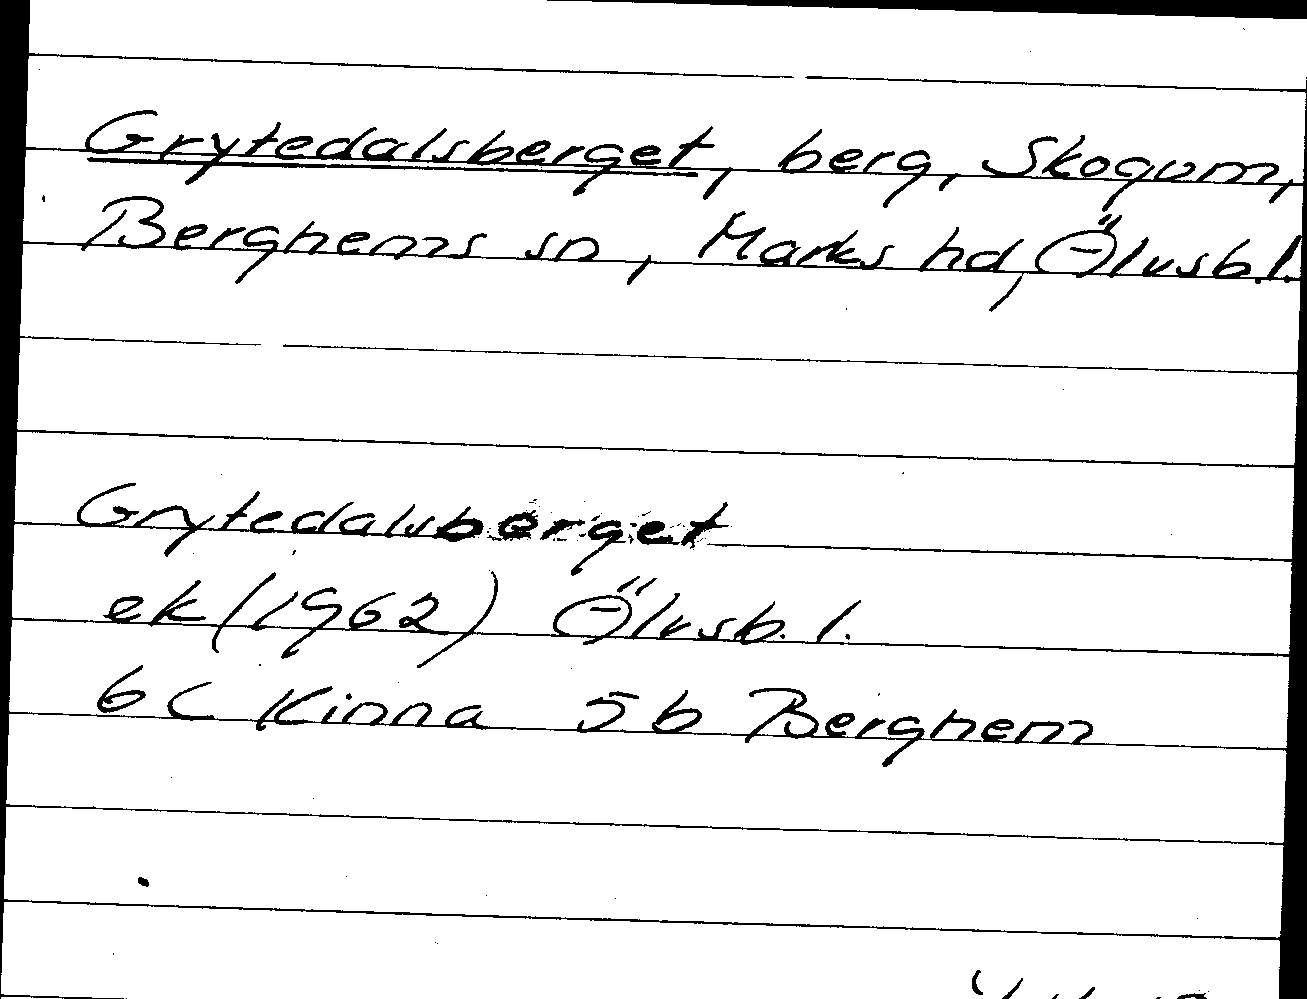 Grytedalsberget, berg, Skogum,
Berghems sn, Marks hd, Älvsb.l.
Grytedalsberget
ek (1962) Älvsb. l.
6 C Kinna 5 b Berghem